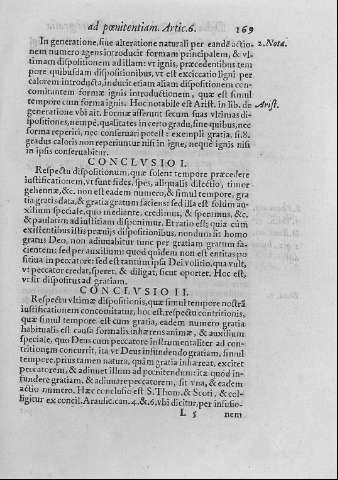 ad pœnitentiam. Artic. 6. 169
In generatione, siue alteratione naturali per eandē actio- 2. Nota.
nem numero agens introducit formam principalem, & vl-
timam dispositionem ad illam: vt ignis, præcedentibus tem
pore quibusdam dispositionibus, vt est exiccatio ligni per
calorem introducta, inducit etiam aliam dispositionem con-
comitantem formæ ignis introductionem, quæ est simul
tempore cum forma ignis. Hoc notabile est Arist. in lib. de Arist.
generatione vbi ait. Formæ afferunt secum suas vltimas di
spositiones, nempè, qualitates in certo gradu, sine quibus, nec
forma reperiri, nec conseruari potest: exempli gratia, si 8.
gradus caloris non reperiuntur nisi in igne, neque ignis nisi
in ipsis conseruabitur.
CONCLVSIO I.
Respectu dispositionum, quæ solent tempore præcedere
iustificationem, vt sunt fides, spes, aliqualis dilectio, timor
gehennæ, &c. non est eadem numero, & simul tempore, gra
tia gratis data, & gratia gratum faciens: sed illa est solùm au-
xilium speciale, quo mediante, credimus, & speramus, &c.
& paulatim ad iustitiam disponimur. Et ratio est; quia cùm
existentibus illis præuijs dispositionibus, nondum sit homo
gratus Deo, non adiuuabitur tunc per gratiam gratum fa-
cientem: sed per auxilium: quod quidem non est entitas po
sitiua in peccatore: sed est tantùm ipsa Dei volitio, qua vult,
vt peccator credat, speret, & diligat, sicut oportet. Hoc est,
vt sit dispositus ad gratiam.
CONCLVSIO II.
Respectu vltimæ dispositionis, quæ simul tempore nostrā
iustificationem concomitatur, hoc est, respectu contritionis,
quæ simul tempore est cum gratia, eadem numero gratia
habitualis est causa formalis inhærens animæ, & auxilium
speciale, quo Deus cum peccatore instrumentaliter ad con-
tritionem concurrit, ita vt Deus infundendo gratiam, simul
tempore, prius tamen natura, quàm gratia inhæreat, excitet
peccatorem, & adiuuet illum ad pœnitendum: ita quod in-
fundere gratiam, & adiuuare peccatorem, sit vna, & eadem
actio numero. Hæc conclusio est S. Thom. & Scoti, & col-
ligitur ex concil. Arausic. can. 4. & 6. vbi dicitur, per infusio-
L 5 nem